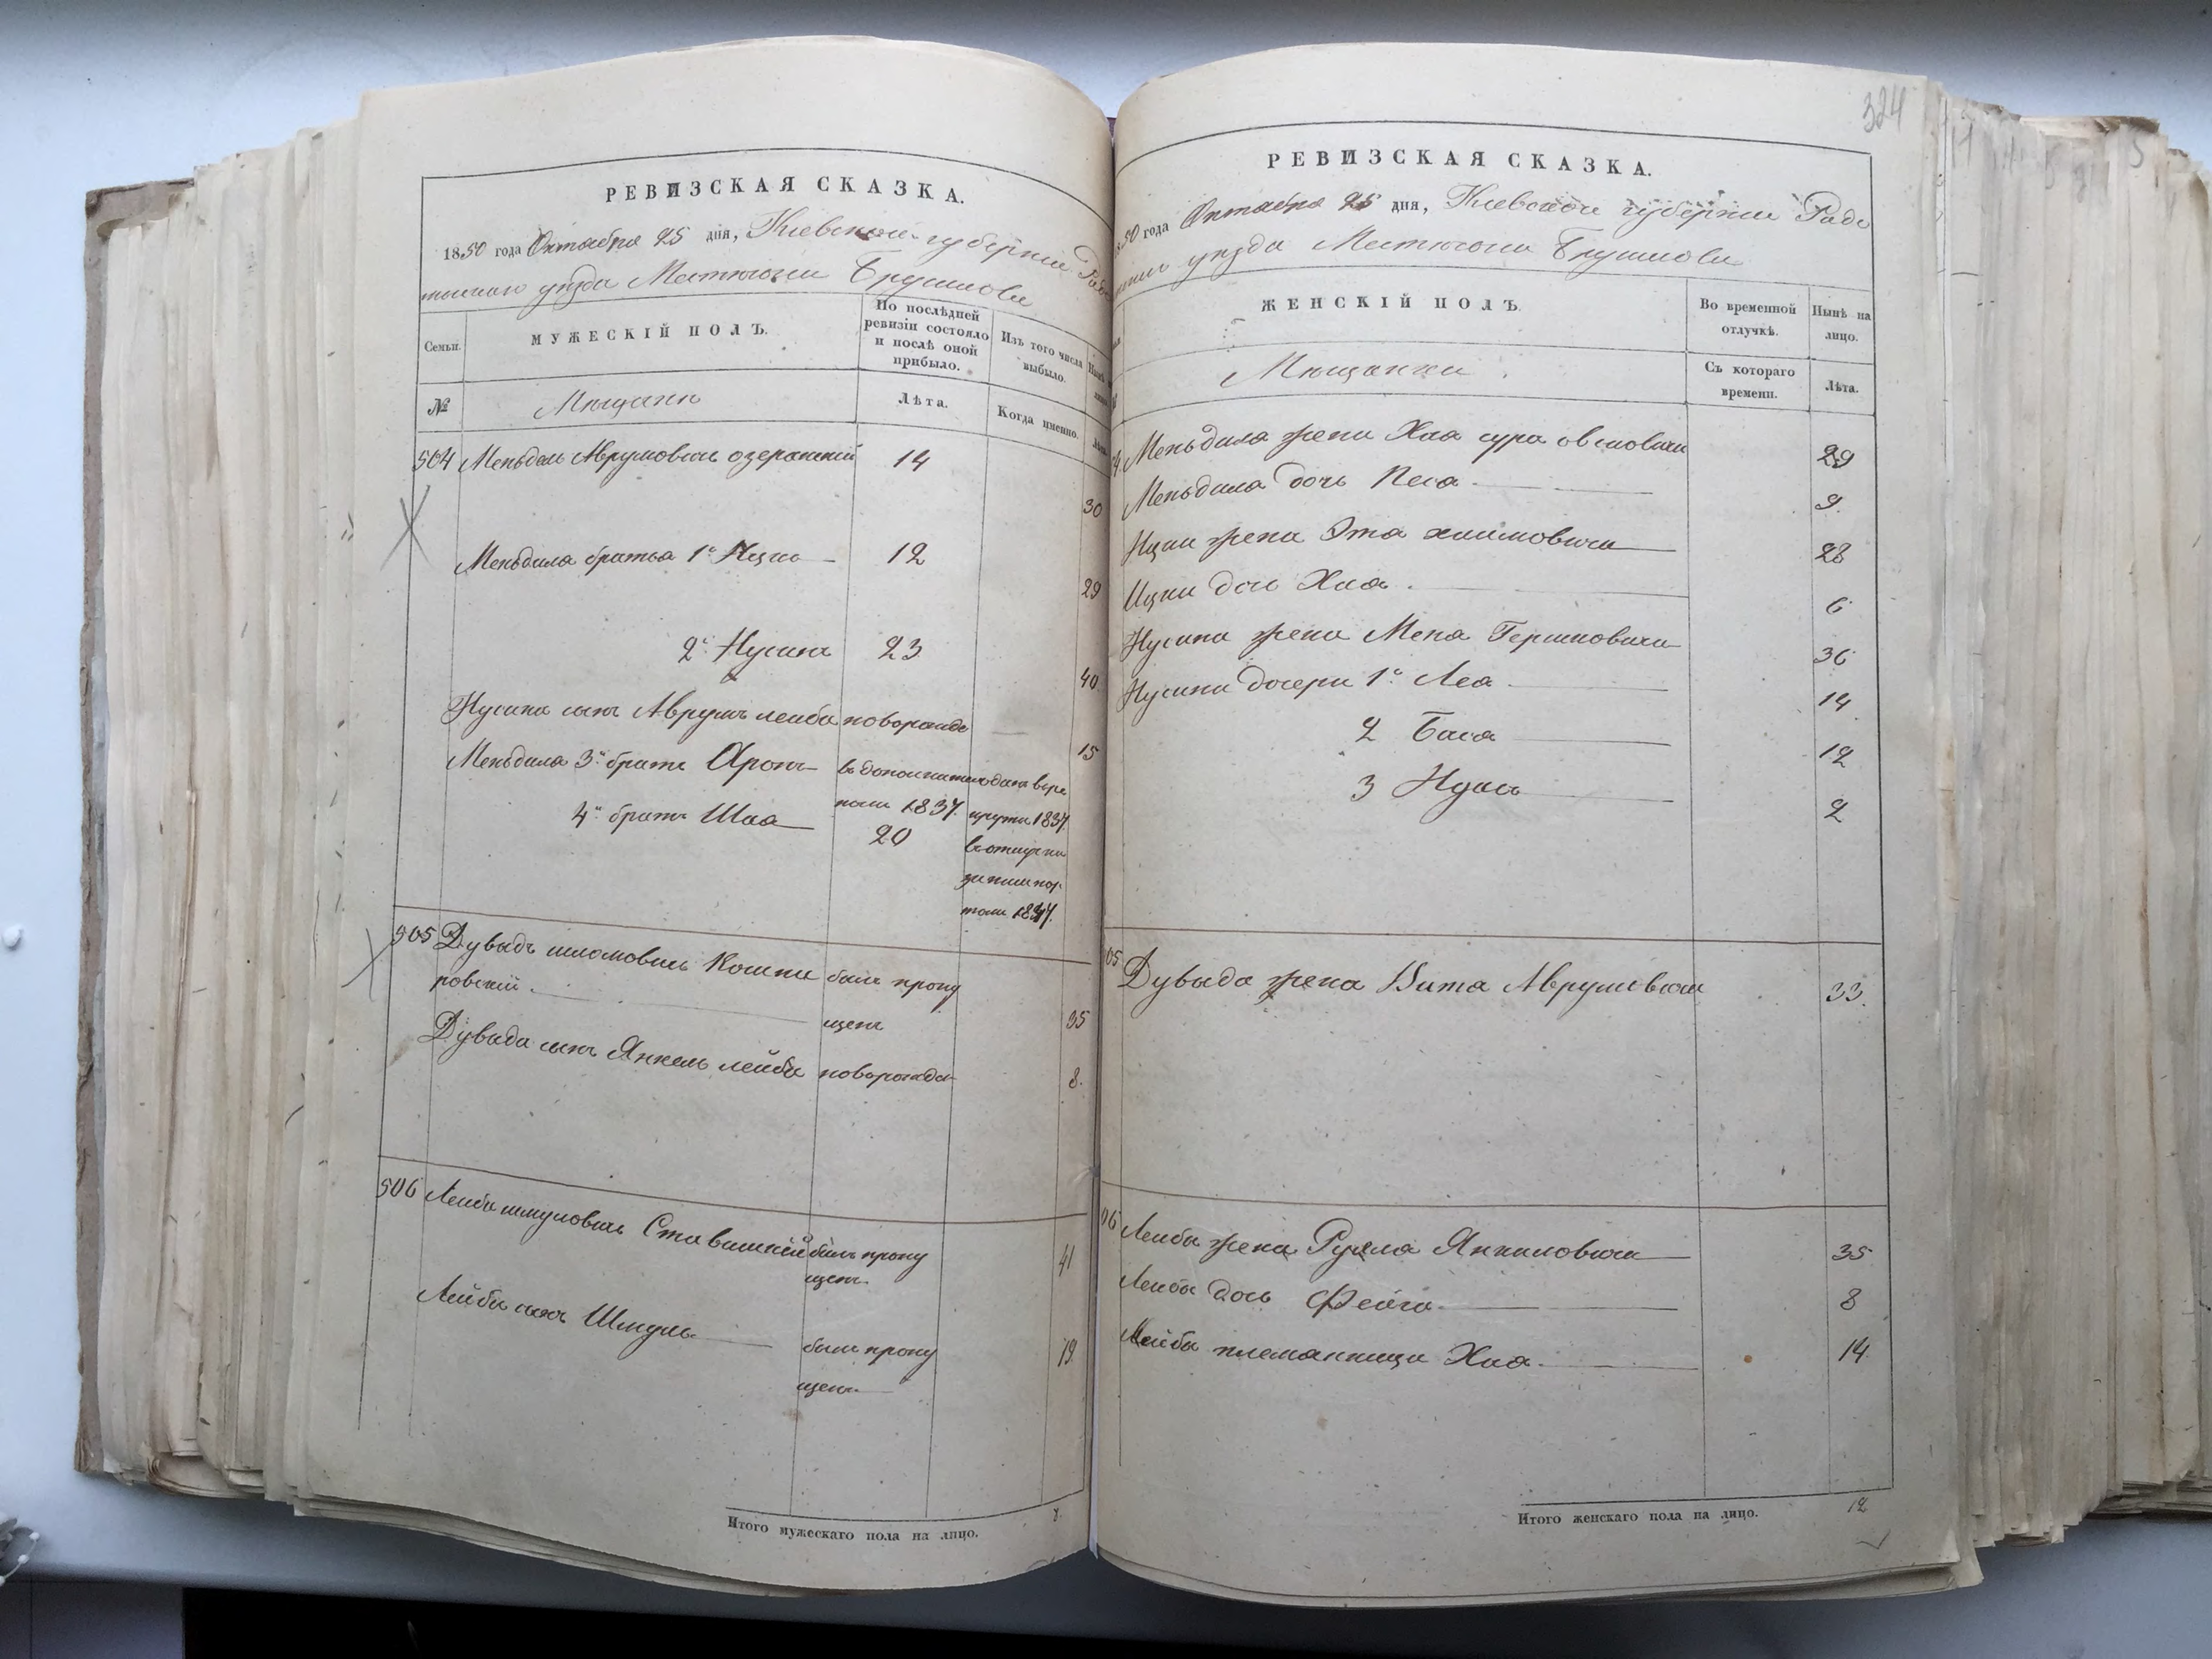 РЕВИЗСКАЯ СКАЗКА.
1850 года Октября 25 дня, Кіевской губерніи Радо
мысльского уѣзда Мѣстечка Брусилова
Семьи.
МУЖЕСКІЙ ПОЛЪ.
По послѣдней ревизіи состояло и послѣ оной прибыло.
Изъ того числа выбыло.
№
Мѣщане
Лѣта.
Когда именно.
504 Меньдель Аврумовичь Озеранскій 14
30
Меньдиля братья 1й Ицко 12
29
2й Нусинъ 23
40
Нусина сынъ Аврумъ Лейба новорожде
15
Меньдиля 3й братъ Аронъ
в дополнител
ной 1837
отданъ в ре
круты 1837
4й братъ Шая 20
в отлучки
1834
505 Дувыдъ Шломовичь
ровскій был пропу
щенъ 35
Дувыда сынъ Янкель Лейба новорожде 8
506 Лейба Шмулевичь Ставискій былъ пропу
щенъ 41
Лейбы сынъ Шмуль
былъ пропу
щенъ 19
Итого мужескаго пола на лицо. 8
324
РЕВИЗСКАЯ СКАЗКА.
1850 года Октября 25 дня, Кіевской губерніи Радо
уѣзда Мѣстечка Брусилова
ЖЕНСКІЙ ПОЛЪ.
Во временной отлучкѣ.
Нынѣ на лицо.
Мѣщанки
Съ котораго времени.
Лѣта.
Меньдиля жена Хая Сура 29
Меньдиля дочь Песа 9
Ицки жена Эта Хаимовичь 28
Ицки дочь Хая 6
Нусина жена Меня Гершковичь 36
Нусина дочери 1я Лея 14
2 Бася 12
3 2
05 Дувыда жена Аврумовичь 33
06 Лейбы жена Рухля Янкеловичь 35
Лейбы дочь Фейга 8
Лейбы племянница Хая 14
Итого женскаго пола на лицо. 12